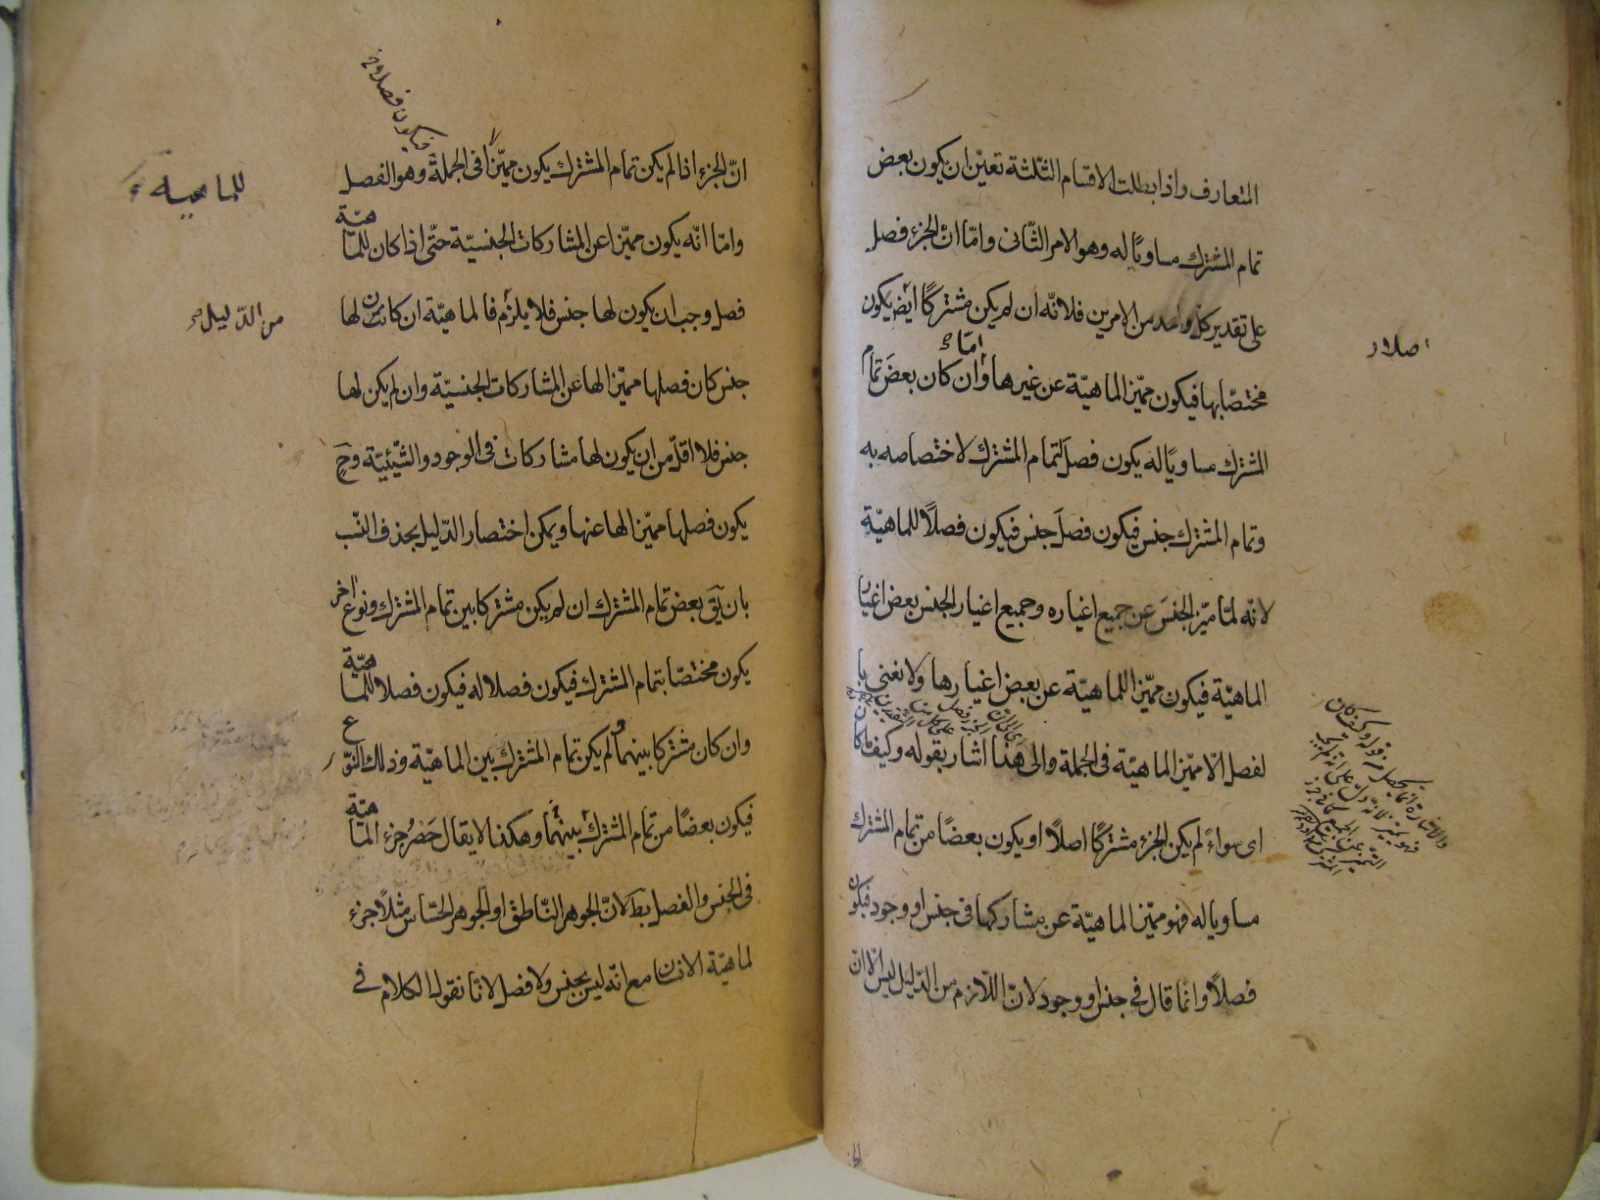 المتعارف واذا بطلت الاقسام الثلثة تعيّن ان يكون بعض
تمام المشترك مساويًا له وهو الامر الثّانى وامّا انّ الجزء فصل
على تقدير كلّ واحد من الامرين فلانّه ان لم يكن مشتركًا ايض يكون
مختصّا بها فيكون مميّز الماهيّة عن غيرها وان كان بعضَ تمام
امّا
المشترك مساويًا له يكون فصلَ لتمام المشترك لاختصاصه به
وتمام المشترك جنس فيكون فصلَ جنس فيكون فصلًا للماهيّة
لانّه لمّا ميّز الجنسَ عن جميع اغياره وجميع اغيار الجنس بعض اغيار
الماهيّة فيكون مميّزا للماهيّة عن بعض اغيارها ولا نعنى با
لفصل الا مميّز الماهيّة فى الجملة والى هذا اشار بقوله وكيف ما كان
اى سواءً لم يكن الجزء مشتركًا اصلًا او يكون بعضًا من تمام المشترك
مساويا له فهو مميّز الماهيّة عن مشاركها فى جنس او وجود فيكون
فصلًا وانّما قال فى جنس او وجود لانّ اللّازم من الدّليل ليس الّا انّ
اصلا
انّ الجزء اذا لم يكن تمام المشترك يكون مميّزًا فى الجملة وهو الفصل
فيكون فصلا
وامّا انّه يكون مميّزا عن المشاركات الجنسيّة حتّى اذا كان للماهيّة
فصل وجب ان يكون لها جنس فلا يلزم فالماهيّة ان كان لها
جنس كان فصلها مميّزا لها عن المشاركات الجنسيّة وان لم يكن لها
جنس فلا اقلّ من ان يكون لها مشاركات فى الوجود والشّيئيّة وحَ
يكون فصلها مميّزا لها عنها ويمكن اختصار الدّليل بحذف النّسب
بان يقَ بعض تمام المشترك ان لم يكن مشتركا بين تمام المشترك ونوع اخر
يكون مختصّا بتمام المشترك فيكون فصلا له فيكون فصلا للماهيّة
وان كان مشتركا بينهما لم يكن تمام المشترك بين الماهيّة وذلك النّوع
فيكون بعضًا من تمام المشترك بينهما وهكذا لا يقال حَصْرُ جزء الماهيّة
فى الجنس والفصل بط لانّ الجوهر النّاطق او الجوهر الحسّاس مثلًا جزء
لماهيّة الانسان مع انّه ليس بجنس ولا فصل لانّا نقول الكلام فى
للماهية
من الدّليل